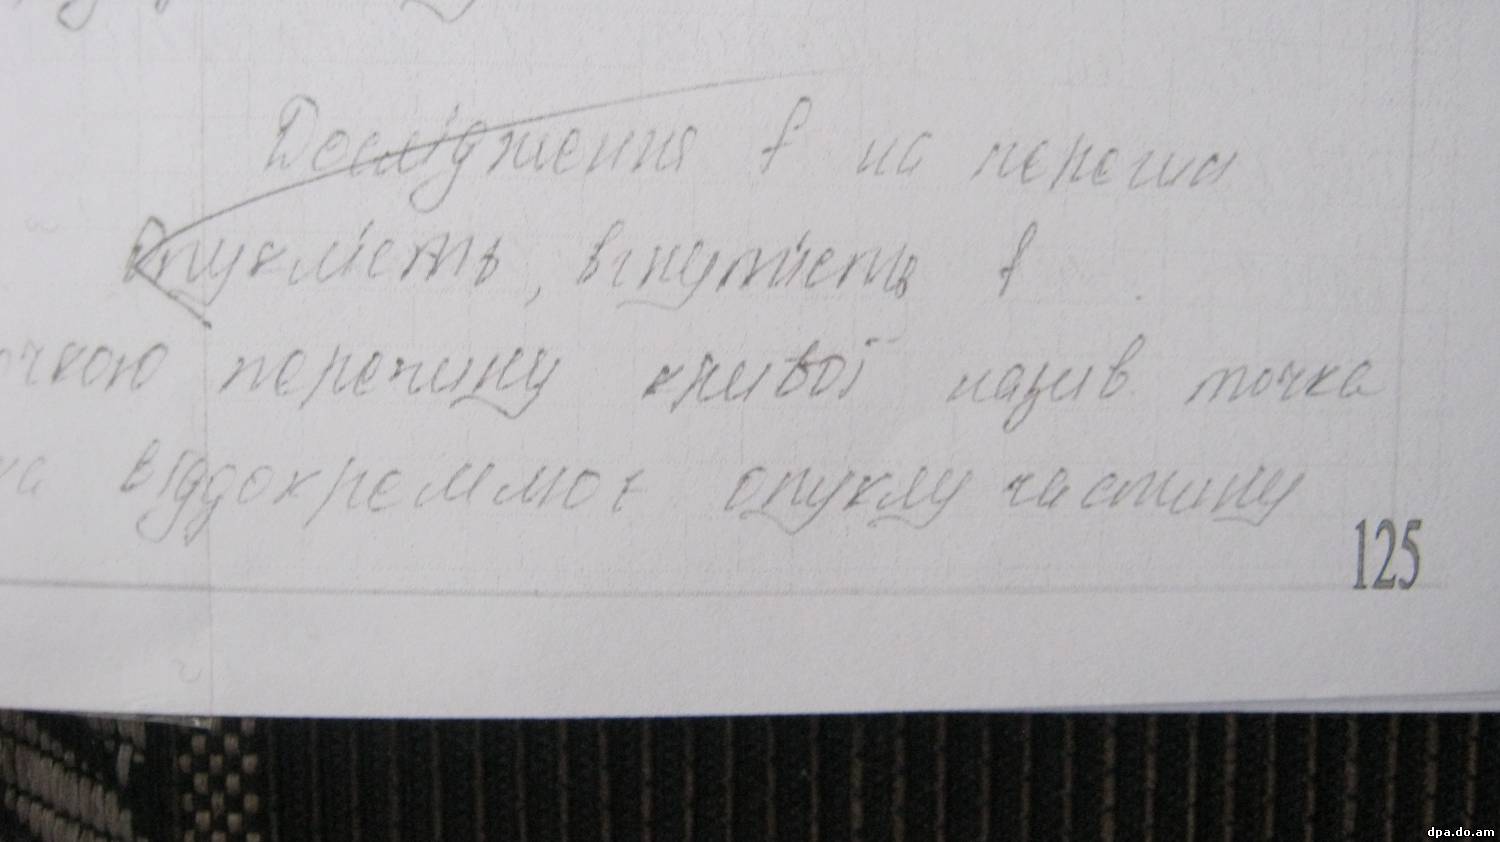 Дослідження f на перегин
Опуклість, вгнутість f
очкою перечину кривої назив. точка
ка віддокремлює опуклу частину
125
dpa.do.am